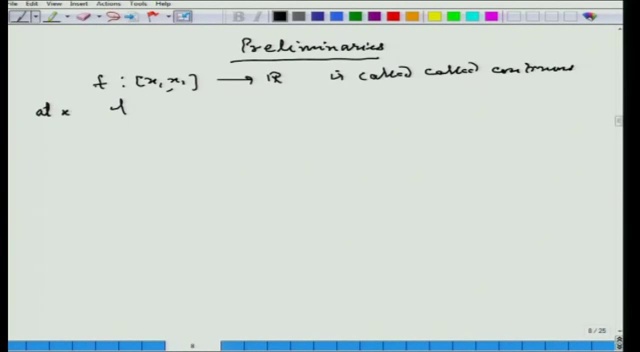 File Edit View Insert Actions Tools Help
Preliminaries
f : [x₁, x₁] ⟶ ℝ is called called continuous
at x
8 / 25
8